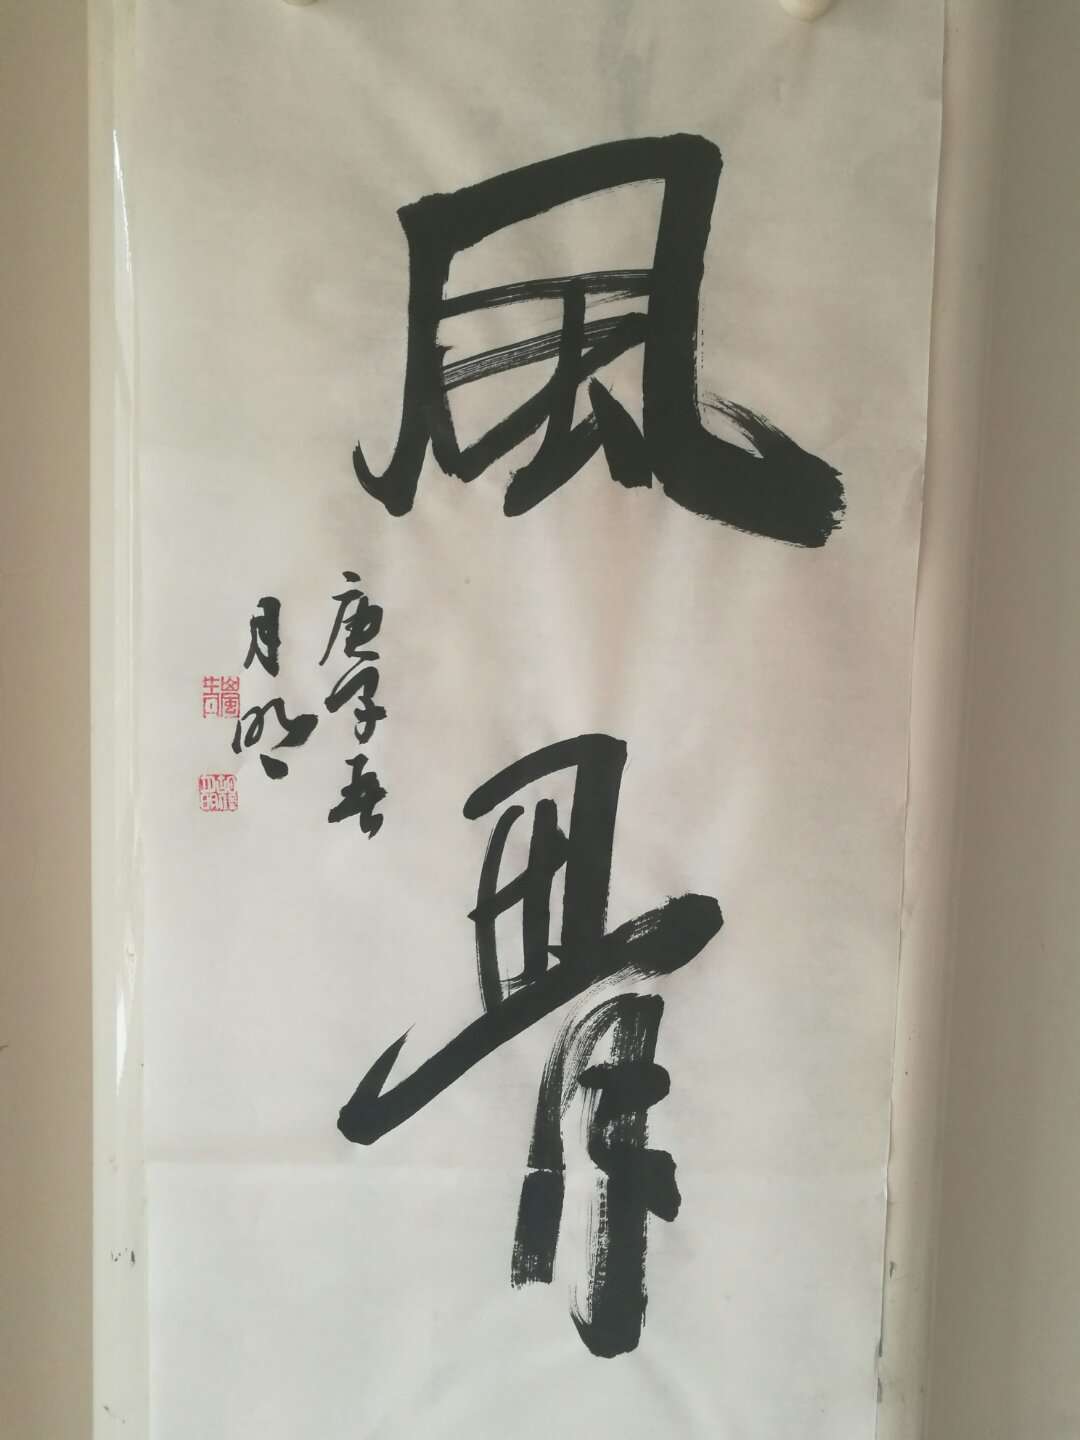 风骨
庚子春
月明